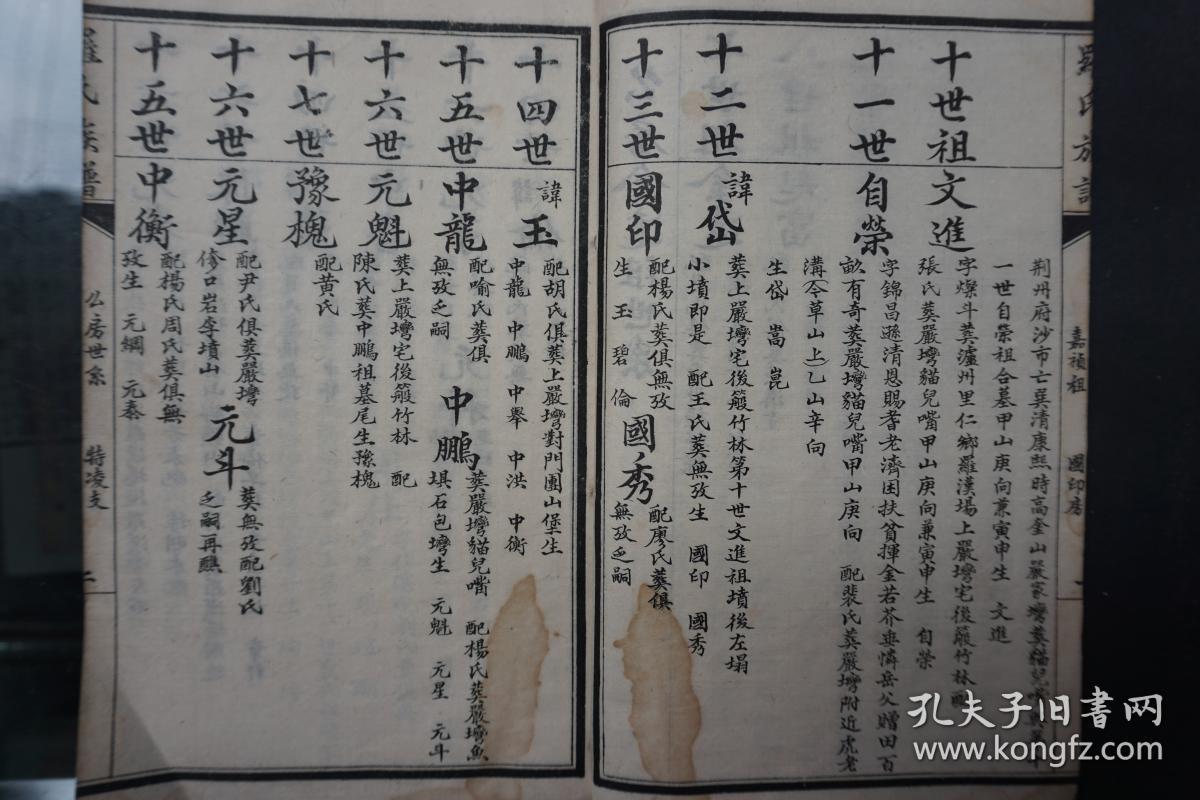 嘉禎祖
國印房
荆州府沙市亡葬清康熙時高奎山嚴家壪葬貓兒嘴
一世自榮祖合墓甲山庚向兼寅申生 文進
十世祖 文進
字燦斗葬瀘州里仁鄉羅漢場上嚴壪宅後簸竹林配
張氏葬嚴壪貓兒嘴甲山庚向兼寅申生 自榮
十一世 自榮
字錦昌遜清恩賜耆老濟困扶貧揮金若芥無憐岳父贈田百
畝有奇葬嚴壪貓兒嘴甲山庚向 配裴氏葬嚴壪附近虎老
溝令草山上乙山辛向
生岱 嵩 崑
十二世 諱岱
葬上嚴壪宅後簸竹林第十世文進祖墳後左塌
小墳即是 配王氏葬無攷生 國印 國秀
十三世 國印
配楊氏葬俱無攷
生 玉 碧 倫
國秀
配廖氏葬俱
無攷乏嗣
十四世 諱玉
配胡氏俱葬上嚴壪對門團山堡生
中龍 中鵬 中舉 中洪 中衡
十五世 中龍
配喻氏葬俱
無攷乏嗣
中鵬
葬嚴壪貓兒嘴 配楊氏葬嚴壪魚
埧石包壪生 元魁 元星 元斗
十六世 元魁
葬上嚴壪宅後簸竹林 配
陳氏葬中鵬祖墓尾生豫槐
十七世 豫槐
配黄氏
十六世 元星
配尹氏俱葬嚴壪
侉口岩李墳山
元斗
葬無攷配劉氏
乏嗣再醮
十五世 中衡
配楊氏周氏葬俱無
攷生 元綱 元泰
公房世系
特凌支
二
孔夫子旧书网
www.kongfz.com